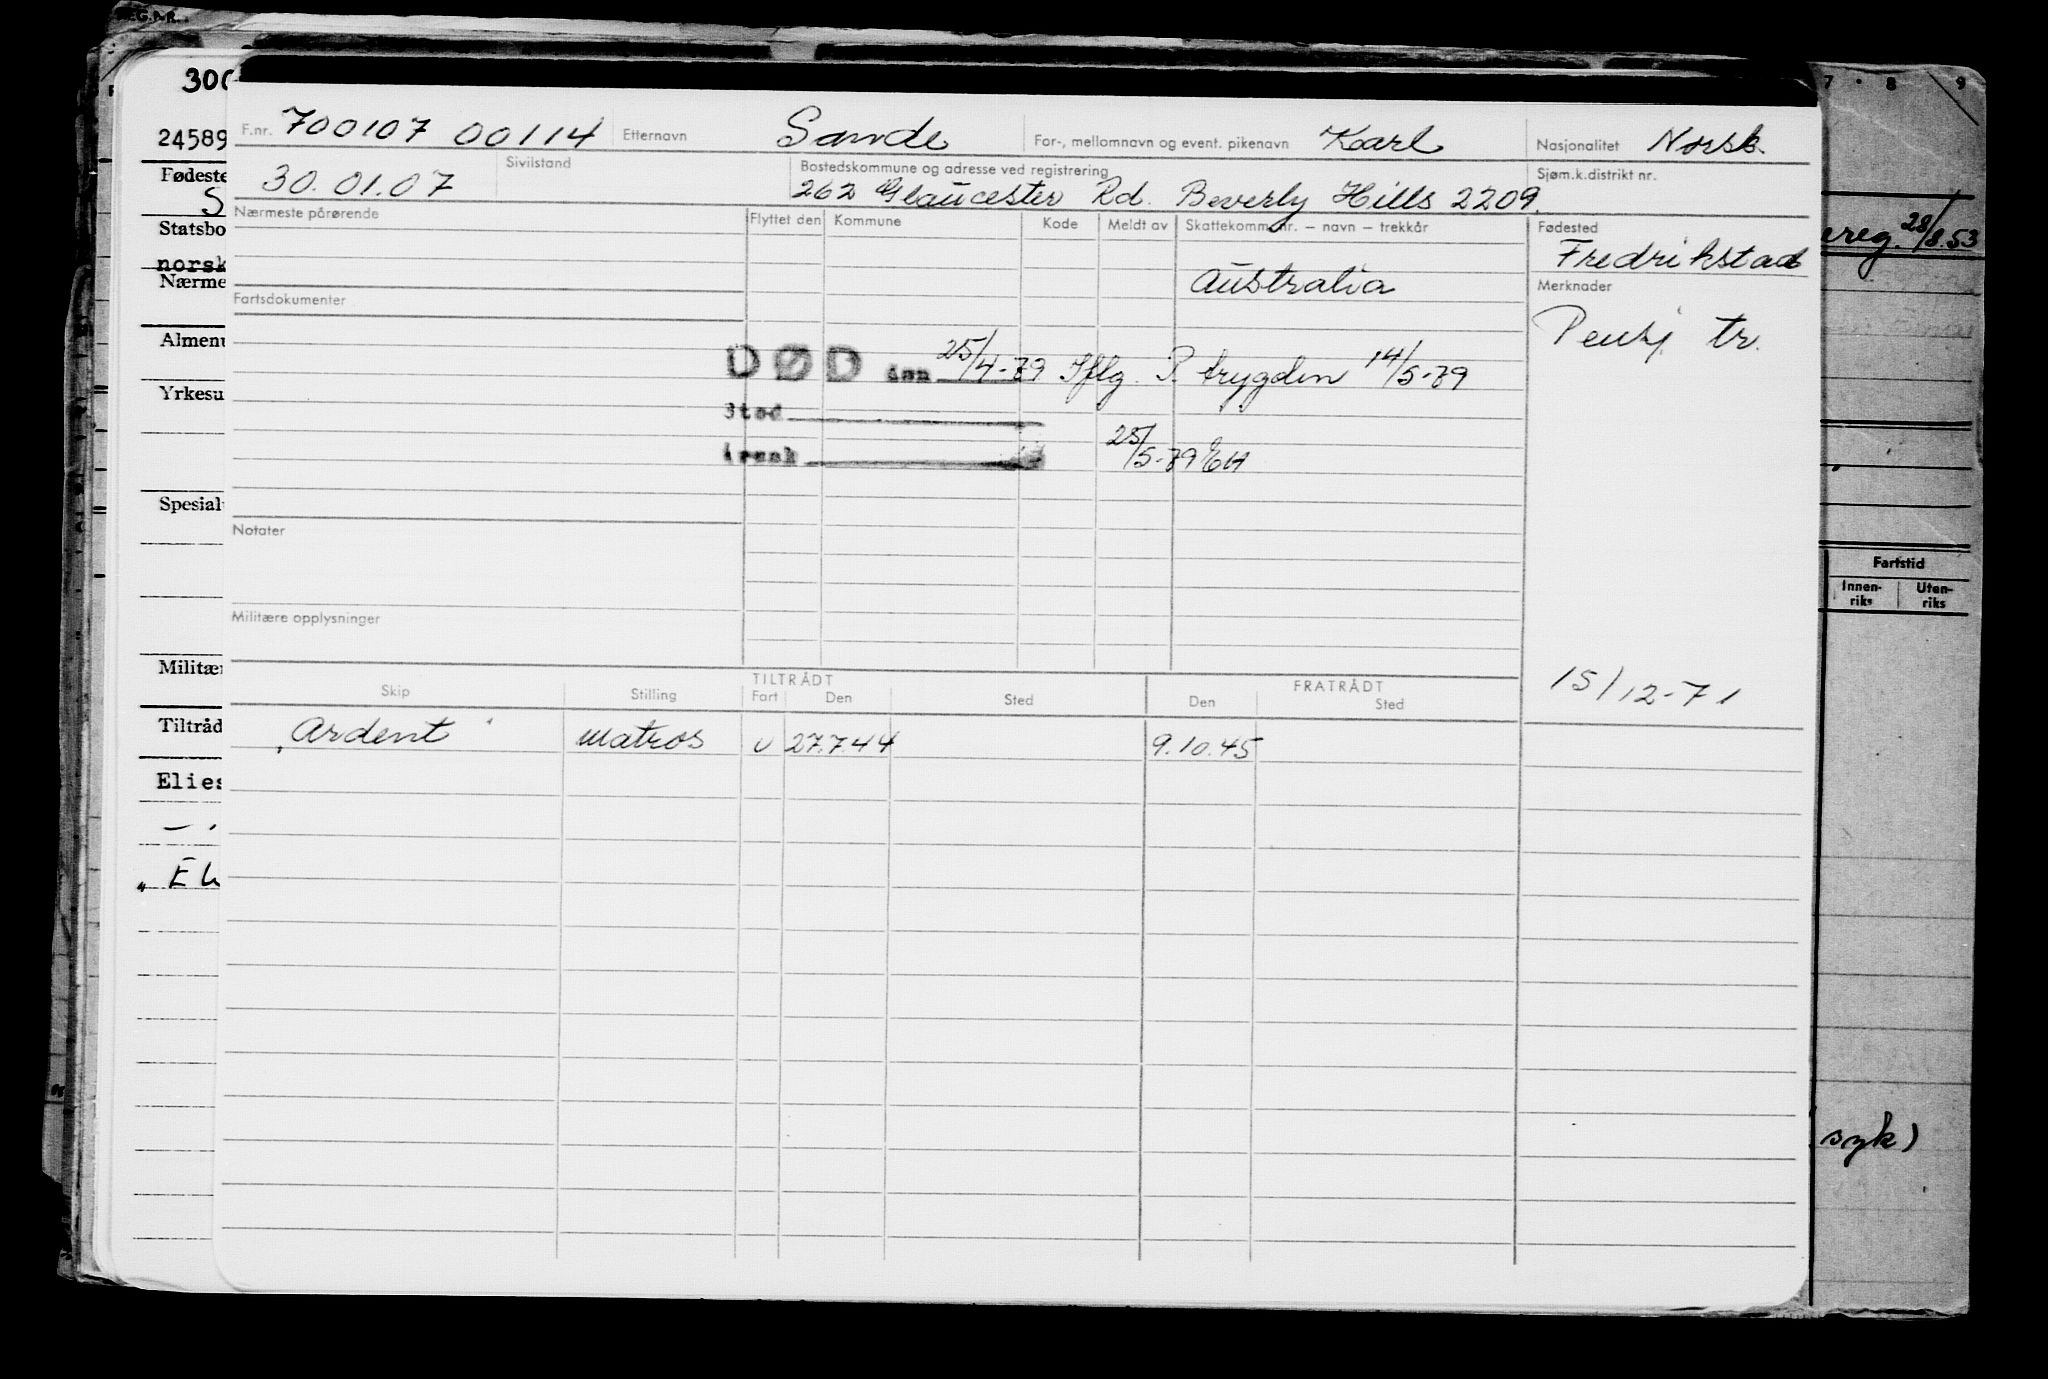 REG.NR.
300
7 · 8 9
24589
F.nr. 700107 00114 Etternavn Sande For-, mellomnavn og event. pikenavn Karl Nasjonalitet Norsk.
Fødeste
30.01.07 Sivilstand Bostedskommune og adresse ved registrering Sjøm.k.distrikt nr.
S 262 Glaucester Rd. Beverly Hills 2209.
Statsbo Nærmeste pårørende Flyttet den Kommune Kode Meldt av Skattekomm.nr. – navn – trekkår Fødested
28/8.53
norsk Fredrikstad
Nærme Fartsdokumenter Australia Merknader
Almenu Pensj tr.
DØD den 25/4-79 Iflg. P. trygden 14/5-79
Yrkesu Sted
Årsak 25/5-79 EH
Spesial
Notater
Fartstid
Innen-riks Uten-riks
Militære opplysninger
Militæ
TILTRÅDT FRATRÅDT 15/12-71
Skip Stilling Fart Den Sted Den Sted
Tiltråd
"Ardent" matros U 27.7.44 9.10.45
Elies
— "
" El
syk)